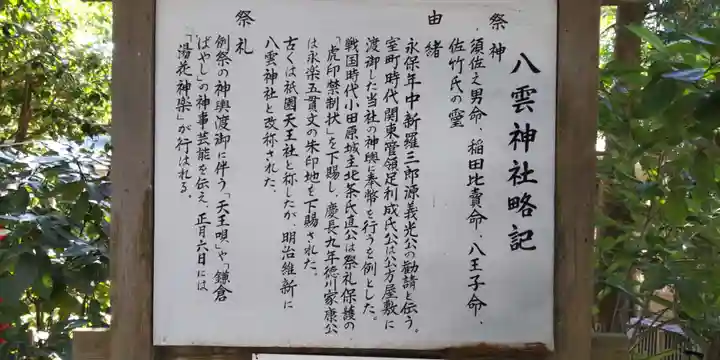 八雲神社略記
祭神
須佐之男命、稲田比賣命、八王子命、
佐竹氏の霊
由緒
永保年中新羅三郎源義光公の勧請と伝う。
室町時代関東管領足利成氏公は公方屋敷に
渡御した当社の神輿に奉幣を行うを例とした。
戦国時代小田原城主北条氏直公は祭礼保護の
「虎印禁制状」を下賜し、慶長九年徳川家康公
は永楽五貫文の朱印地を下賜された。
古くは祇園天王社と称したが、明治維新に
八雲神社と改称された。
祭礼
例祭の神輿渡御に伴う、「天王唄」や「鎌倉
ばやし」の神事芸能を伝え、正月六日には
「湯花神楽」が行はれる。